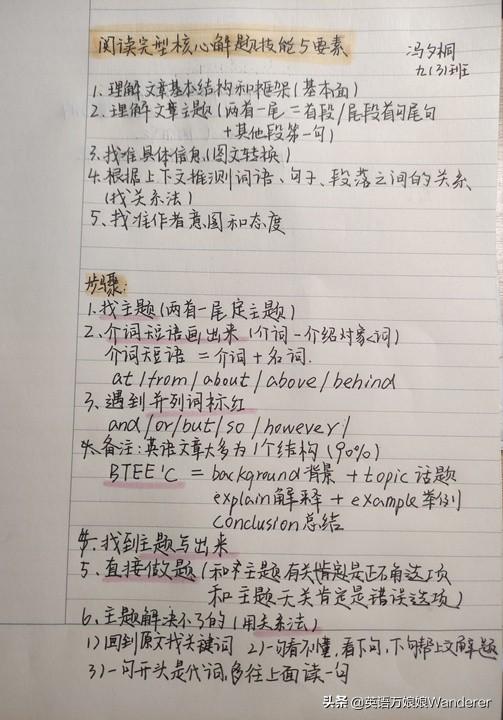 阅读完型核心解题技能与要素
冯夕桐
九(3)班
1、理解文章基本结构和框架(基本面)
2、理解文章主题(两首一尾=首段/尾段首句尾句
+其他段第一句)
3、找准具体信息(图文转换)
4、根据上下文推测词语、句子、段落之间的关系
(找关系法)
5、找准作者意图和态度
步骤:
1、找主题(两首一尾定主题)
2、介词短语画出来(介词-介绍对象词)
介词短语=介词+名词.
at/from/about/above/behind
3、遇到并列词标红
and/or/but/so/however/
4.备注:英语文章大多为1个结构(90%)
BTEE'C = background背景+topic话题
explain解释+example举例
conclusion总结
找到主题写出来
5、直接做题(和主题有关肯定是正确选项
和主题无关肯定是错误选项)
6、主题解决不了的(用关系法)
1)回到原文找关键词 2)一句看不懂,看下句,下句帮上文解题
3)一句开头是代词,多往上面读一句
头条 @英语万娘娘Wanderer